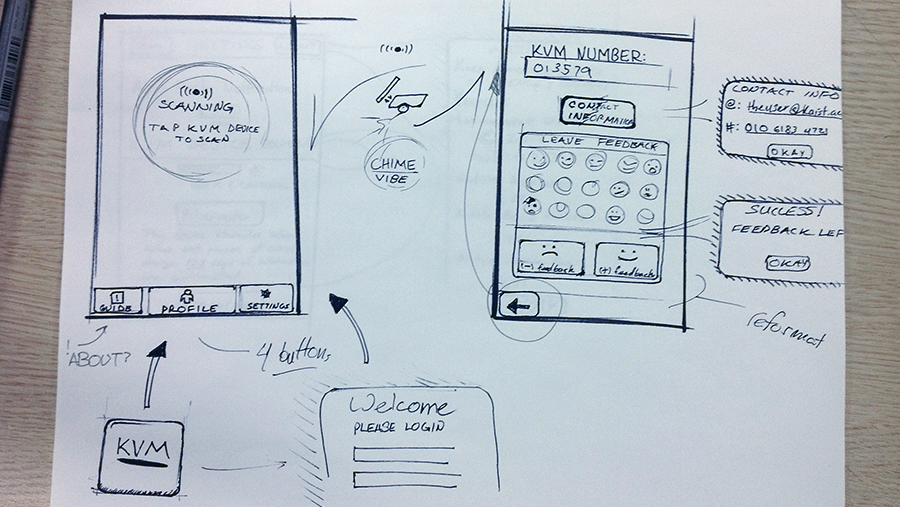 SCANNING
TAP KVM DEVICE
TO SCAN
GUIDE
PROFILE
SETTINGS
ABOUT?
4 buttons
KVM
CHIME
VIBE
Welcome
PLEASE LOGIN
KVM NUMBER:
013579
CONTACT
INFORMATION
LEAVE FEEDBACK
(-) feedback
(+) feedback
CONTACT INFO
@: theuser@kaist.ac
#: 010 6183 4721
OKAY
SUCCESS!
FEEDBACK LEF
OKAY
reformat